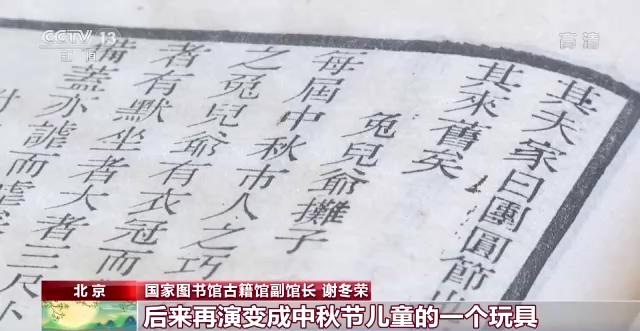 CCTV 13
新闻
高清
其夫家曰團圓節
其來舊矣
兔兒爺攤子
每屆中秋市人之巧
之兔兒爺有衣冠而
者有默坐者大者三尺
備蓋亦謔而虐
北京
国家图书馆古籍馆副馆长 谢冬荣
后来再演变成中秋节儿童的一个玩具